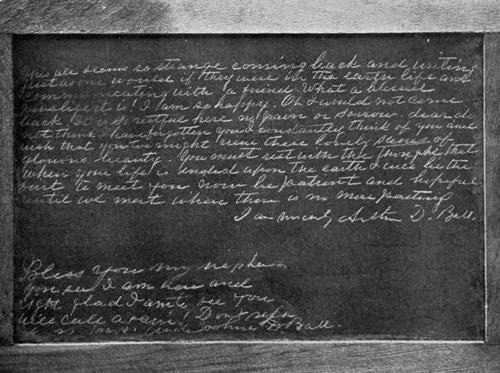 This all seems so strange coming back and writing
just as one would if they were in the earth life and
communicating with a friend. What a blessed
privilege it is! I am so happy. Oh I would not come
back. It is so restful here no pain or sorrow. dear do
not think I have forgotten you I constantly think of you and
wish that you too might view these lovely scenes of
glorious beauty. You must rest with the thought that
when your life is ended upon the earth I will be the
first to meet you. Now be patient and hopeful
until we meet where there is no more parting
I am sincerely D. Ball.
Bless you my nephew
You see I am here and
glad I am to see you
will call again! Don't
Uncle D. Ball.